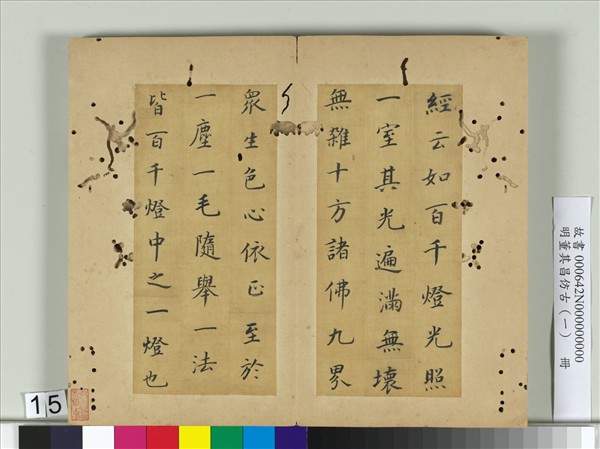 經云如百千燈光照
一室其光遍滿無壞
無雜十方諸佛九界
眾生色心依正至於
一塵一毛隨舉一法
皆百千燈中之一燈也
故書 000642N000000000
明董其昌仿古（一） 冊
15